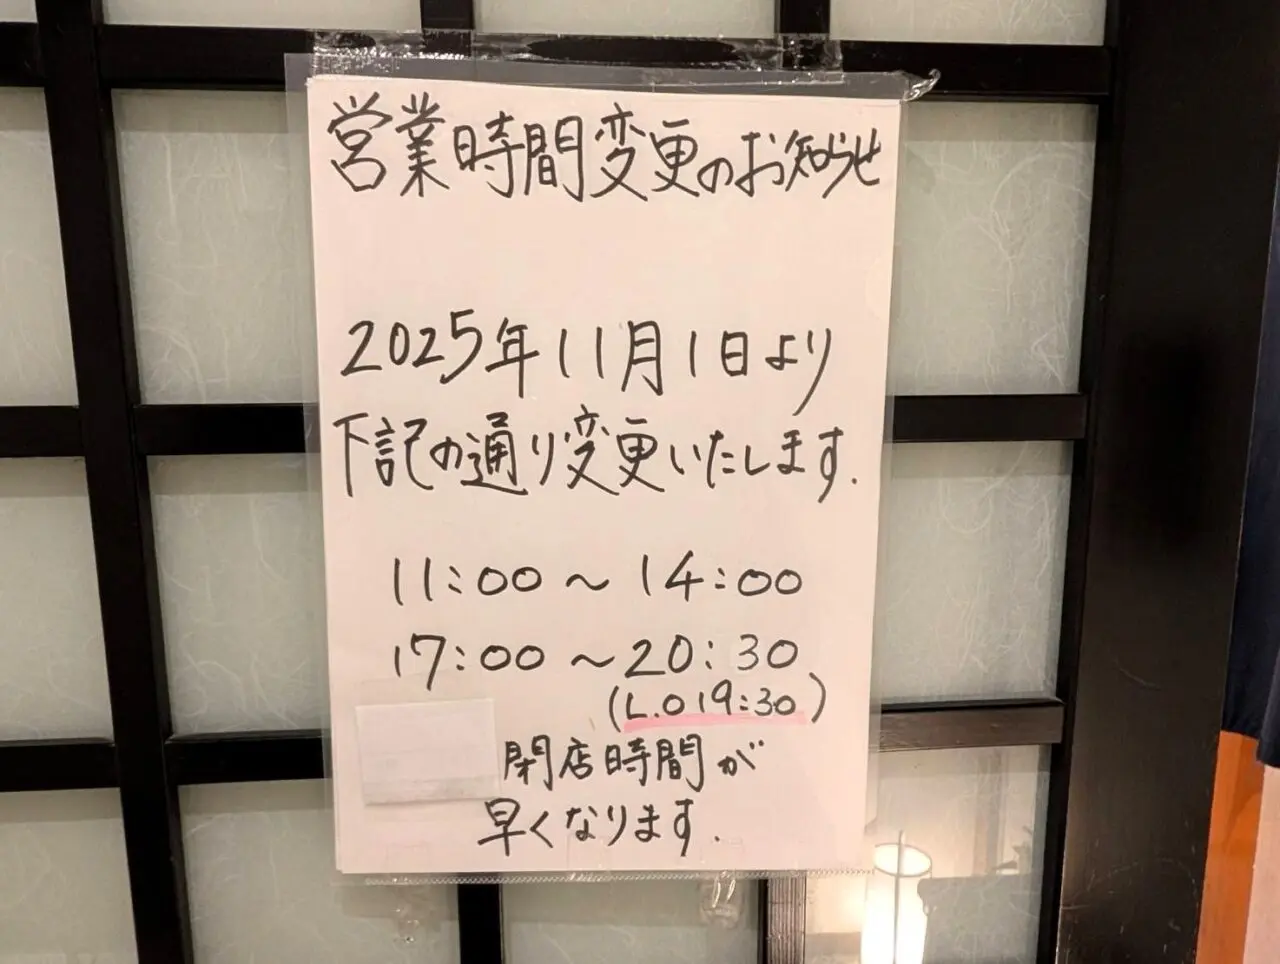 営業時間変更のお知らせ
2025年11月1日より
下記の通り変更いたします.
11:00 ～ 14:00
17:00 ～ 20:30
(L.O 19:30)
閉店時間が
早くなります.